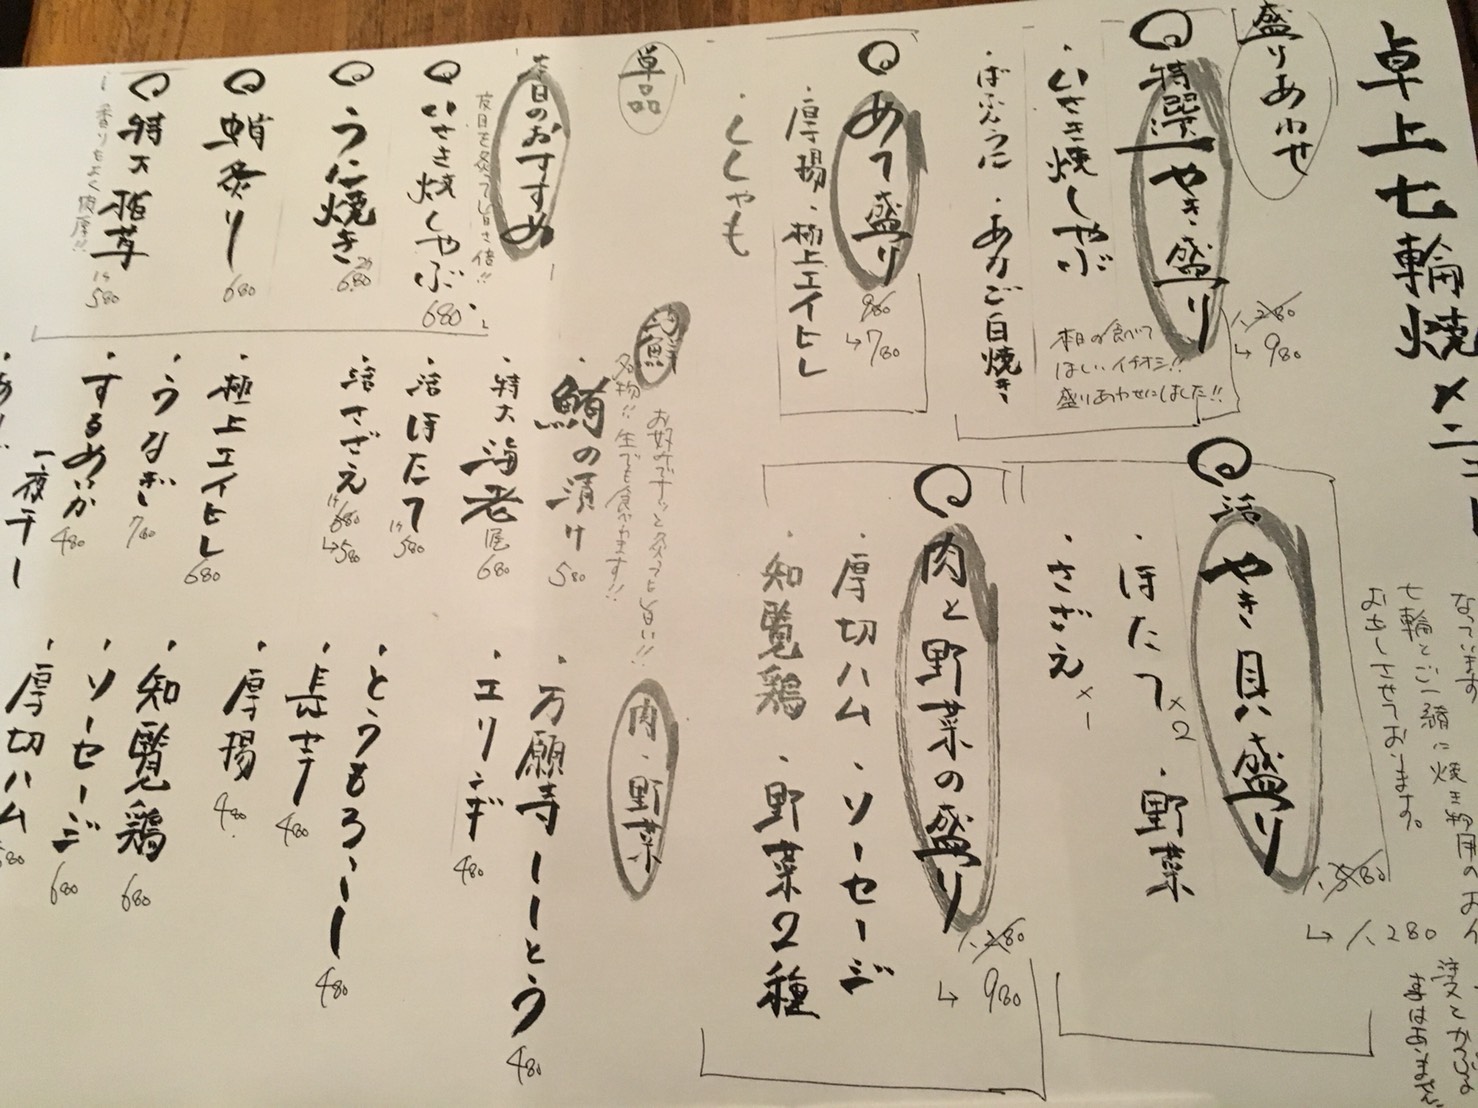 卓上七輪焼メニュー
なっています
七輪とご一緒に焼き物用の
お出しさせております。
盛りあわせ
特選やき盛り
1,280
↳ 980
本日の食べて
ほしいイチオシ!!
盛りあわせにしました!!
・いさき焼しゃぶ
・ばふんうに ・あなご白焼き
あて盛り
880
↳ 780
・厚揚・極上エイヒレ
・ししゃも
活やき貝盛り
1,580
↳ 1,280
・ほたて×2 ・野菜
・さざえ×1
肉と野菜の盛り
1,280
↳ 980
・厚切ハム・ソーセージ
・知覧鶏・野菜2種
単品
本日のおすすめ
いさき焼しゃぶ 680
うに焼き 680
蛸炙り 680
特大椎茸 580
香りもよく肉厚!!
海鮮
名物!!生でも食べれます!!
・鮪の漬け 580
・特大海老 680
・活ほたて 580
・活さざえ 680 ↳580
・極上エイヒレ 680
・うなぎ 780
・するめいか 480
一夜干し
肉・野菜
・万願寺とうがらし 480
・エリンギ 480
・とうもろこし 480
・長芋 480
・厚揚 480
・知覧鶏 680
・ソーセージ 680
・厚切ハム 580